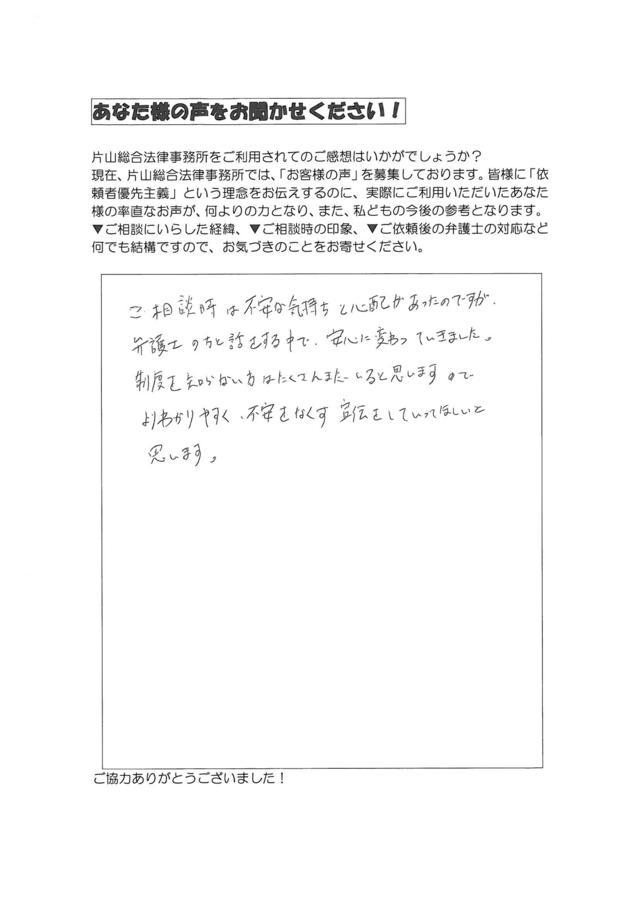 あなた様の声をお聞かせください！
片山総合法律事務所をご利用されてのご感想はいかがでしょうか？
現在、片山総合法律事務所では、「お客様の声」を募集しております。皆様に「依
頼者優先主義」という理念をお伝えするのに、実際にご利用いただいたあなた
様の率直なお声が、何よりの力となり、また、私どもの今後の参考となります。
▼ご相談にいらした経緯、▼ご相談時の印象、▼ご依頼後の弁護士の対応など
何でも結構ですので、お気づきのことをお寄せください。
ご相談時は不安な気持ちと心配があったのですが、
弁護士の方と話をする中で、安心に変わっていきました。
制度を知らない方はたくさんまだいると思いますので
よりわかりやすく、不安をなくす宣伝をしていってほしいと
思います。
ご協力ありがとうございました！